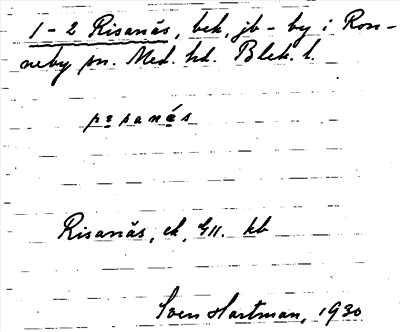 1-2 Risanäs, bek, jb-by i Ron-
neby sn. Med. hd. Blek. l.
Risanäs, ek, G11. kb
Sven Hartman, 1930